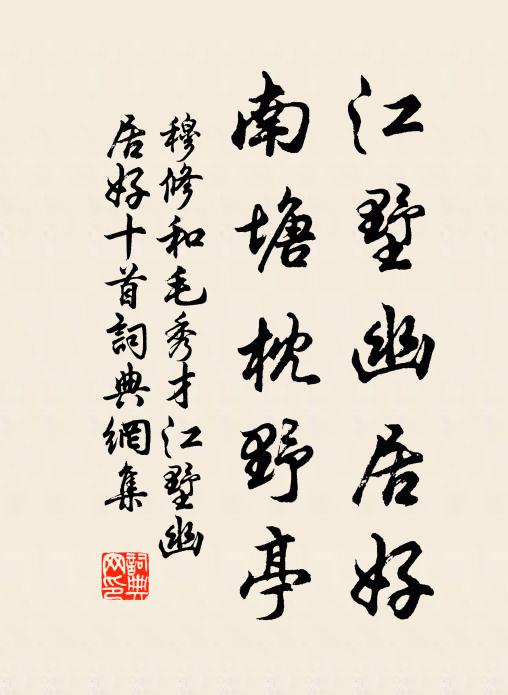 江墅幽居好
南塘枕野亭
穆修和毛秀才江墅幽
居好十首詞典網集
詞典网印